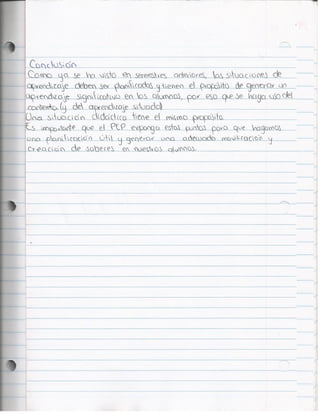 Conclusión
Como ya se ha visto en semestres anteriores, las situaciones de
aprendizaje deben ser planificadas y tienen el propósito de generar un
aprendizaje significativo en los alumnos, por eso que se haga uso del
contexto (y del aprendizaje situado)
Una situación didáctica tiene el mismo propósito.
Es importante que el PEP exponga estos puntos para que hagamos
una planificación útil y generar una adecuada movilización y
creación de saberes en nuestros alumnos.